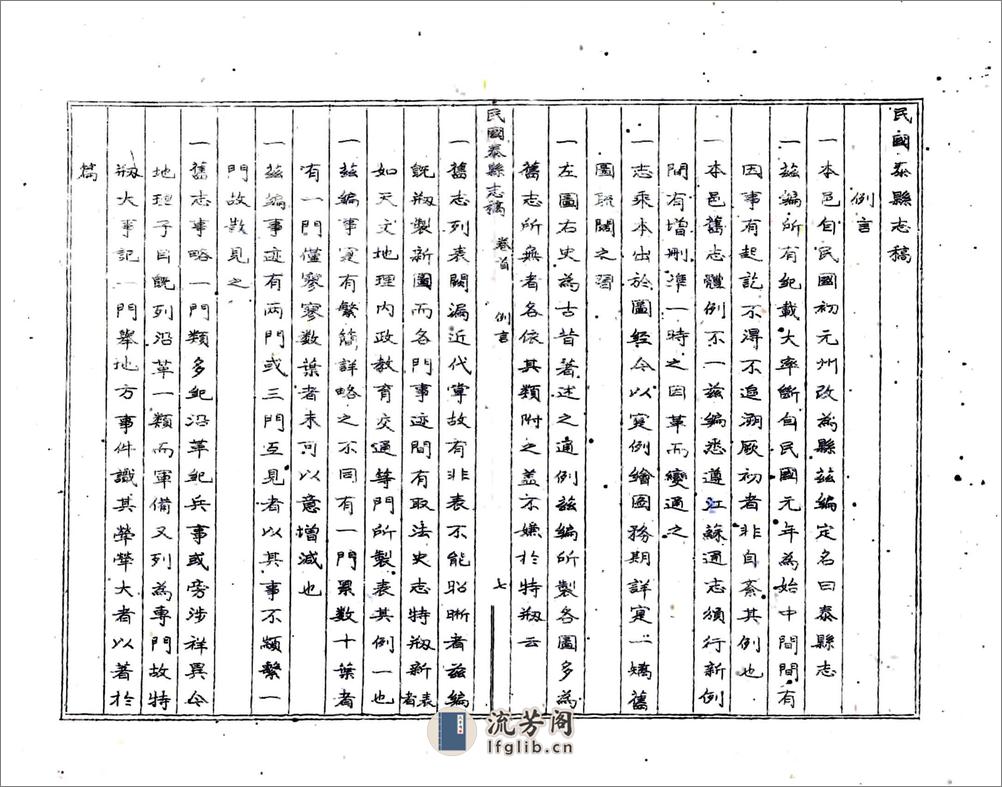 民國泰縣志稿
例言
一本邑自民國初元州改為縣茲編定名曰泰縣志
一茲編所有紀載大率斷自民國元年為始中間間有
因事有起訖不得不追溯厥初者非自紊其例也
一本邑舊志體例不一茲編悉遵江蘇通志頒行新例
間有增刪準一時之因革而變通之
一志乘本出於圖經今以實例繪圖務期詳實一矯舊
圖疏闊之習
一左圖右史為古昔著述之通例茲編所製各圖多為
舊志所無者各依其類附之蓋不嫌於特剏云
民國泰縣志稿 卷首 例言 七
一舊志列表闕漏近代掌故有非表不能昭晰者茲編
既剏製新圖而各門事迹間有取法史志特剏新表者
如天文地理內政教育交通等門所製表其例一也
一茲編事實有繁簡詳略之不同有一門累數十葉者
有一門僅寥寥數葉者未可以意增減也
一茲編事迹有兩門或三門互見者以其事不類繫一
門故散見之
一舊志事略一門類多紀沿革紀兵事或旁涉祥異今
地理子目既列沿革一類而軍備又列為專門故特
剏大事記一門舉地方事件識其犖犖大者以著於
篇
流芳阁
lfglib.cn